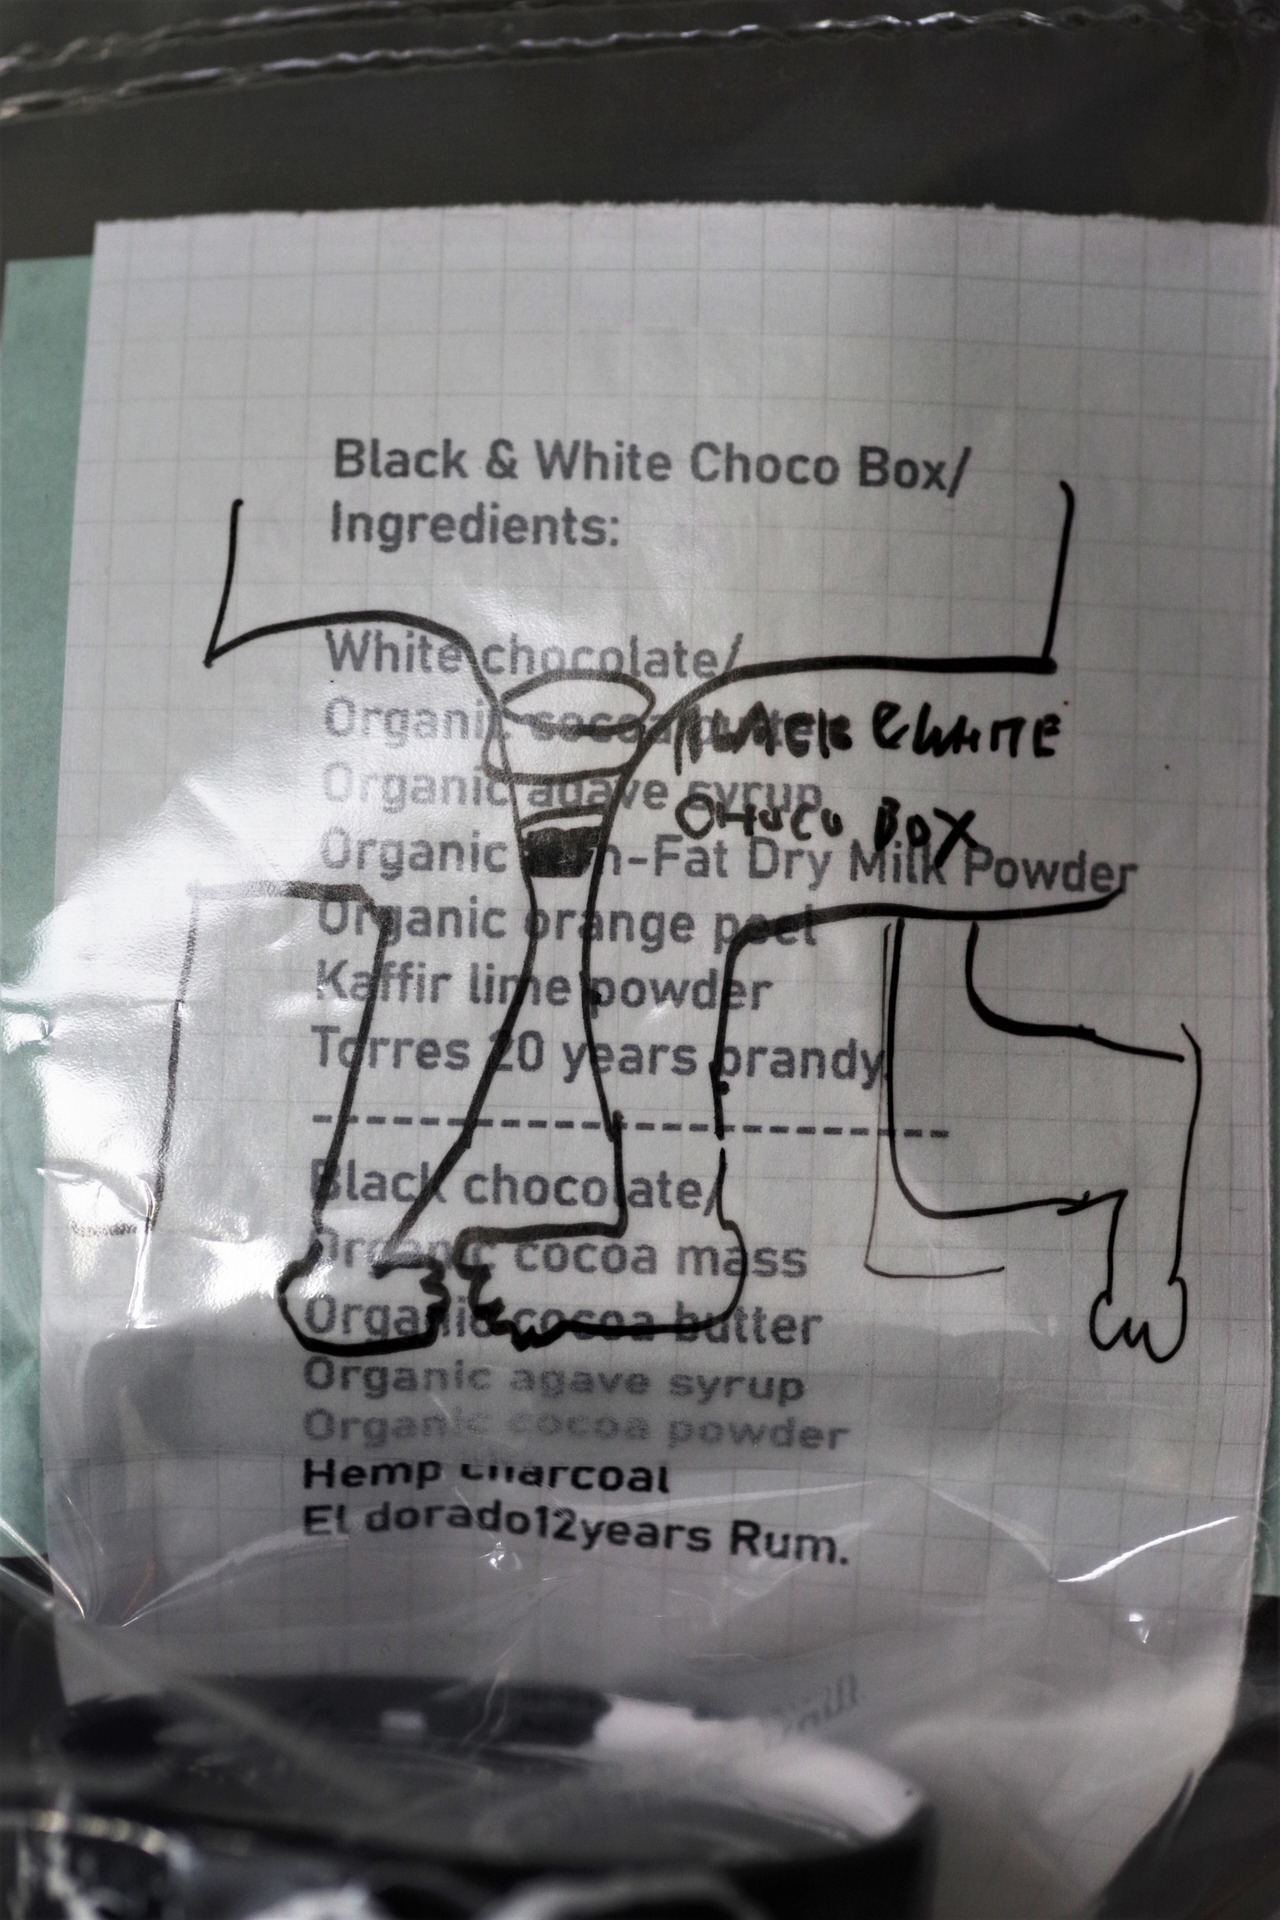 Black & White Choco Box/
Ingredients:
White chocolate/
Organic cocoa butter
BLACK & WHITE
Organic agave syrup
CHOCO BOX
Organic Non-Fat Dry Milk Powder
Organic orange peel
Kaffir lime powder
Torres 20 years brandy
--------------------
Black chocolate/
Organic cocoa mass
Organic cocoa butter
Organic agave syrup
Organic cocoa powder
Hemp charcoal
El dorado12years Rum.